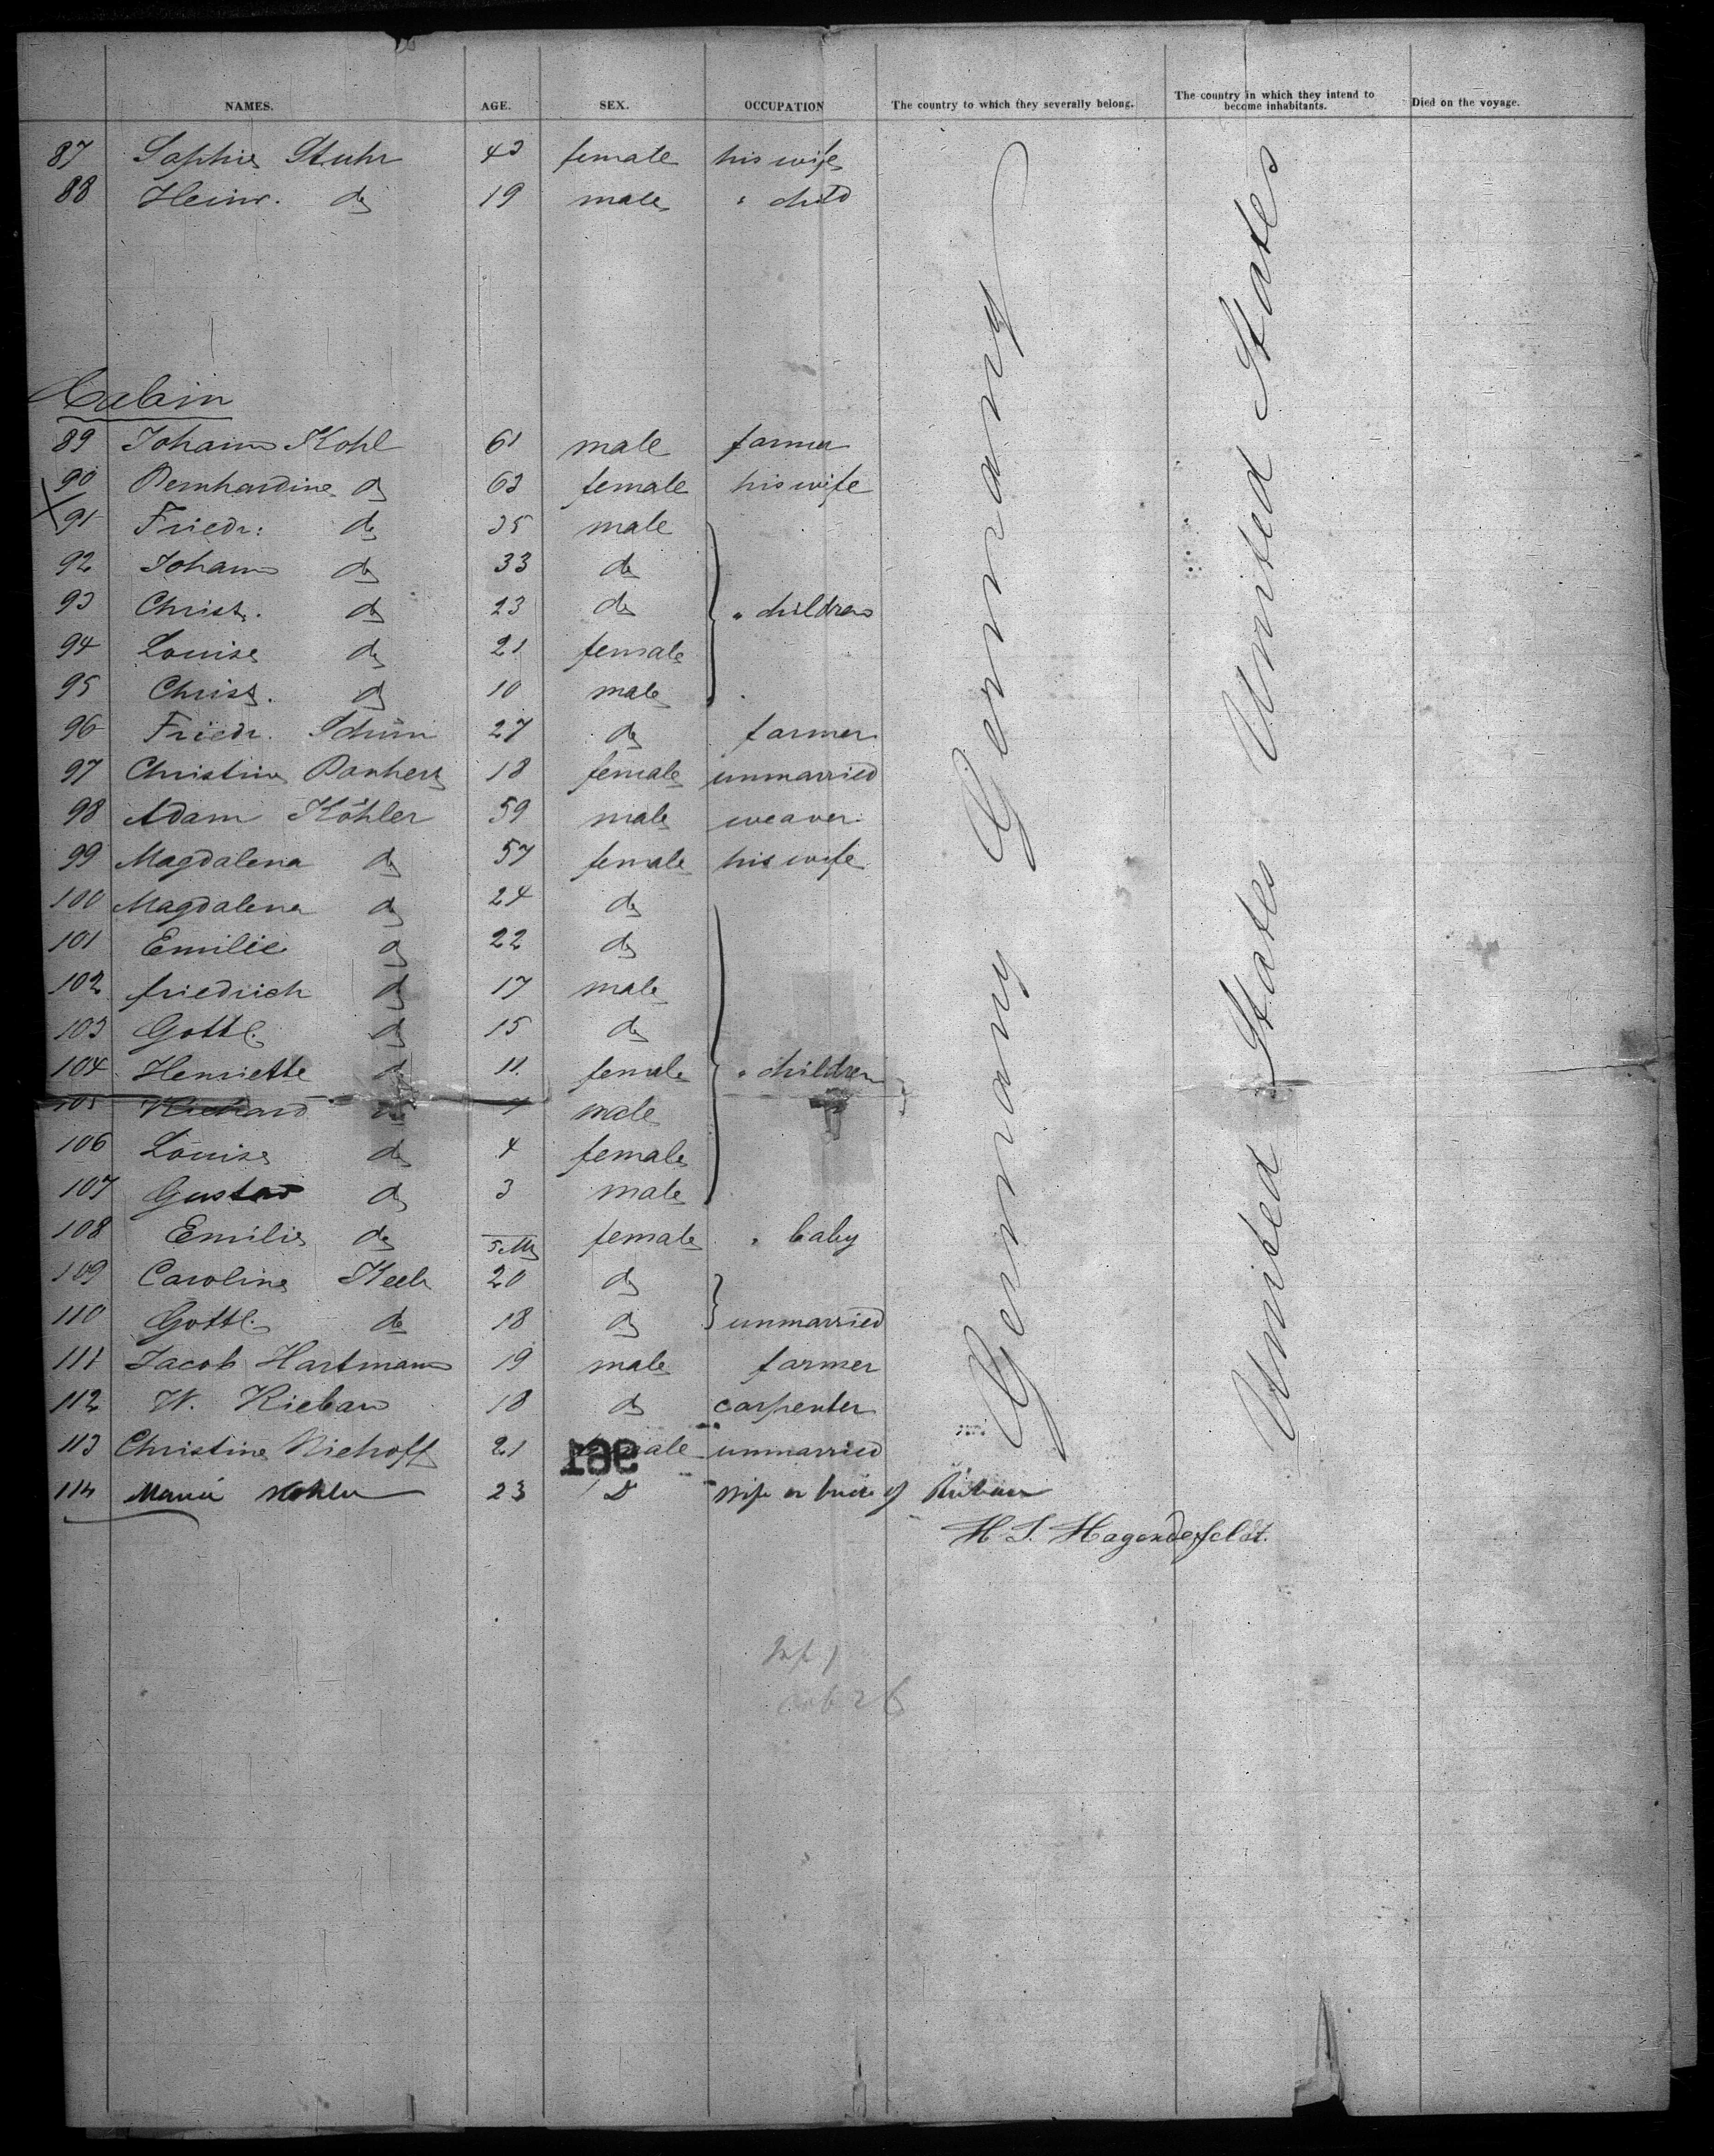 NAMES. AGE. SEX. OCCUPATION The country to which they severally belong. The country in which they intend to become inhabitants. Died on the voyage.
87 Sophie Stuhr 43 female his wife
88 Heinr. do 19 male " child
Cabin
89 Johann Kohl 61 male farmer
90 Bernhardine do 63 female his wife
91 Friedr: do 35 male
92 Johann do 33 do
93 Christ. do 23 do " children
94 Louise do 21 female
95 Christ. do 10 male
96 Friedr. 27 do farmer
97 Christine 18 female unmarried
98 Adam Köhler 59 male weaver
99 Magdalena do 57 female his wife
100 Magdalena do 24 do
101 Emilie do 22 do
102 friedrich do 17 male
103 Gottl. do 15 do
104 Henriette do 11 female " children
105 Richard do 7 male
106 Louise do 4 female
107 Gustav do 3 male
108 Emilie do 5 M female " baby
109 Caroline Keeb 20 do
110 Gottl. do 18 do unmarried
111 Jacob Hartmann 19 male farmer
112 W. Rieban 18 do carpenter
113 Christine Niehoff 21 female unmarried
114 Marie Kohler 23 D wife or of
Germany Germany
United States United States
198